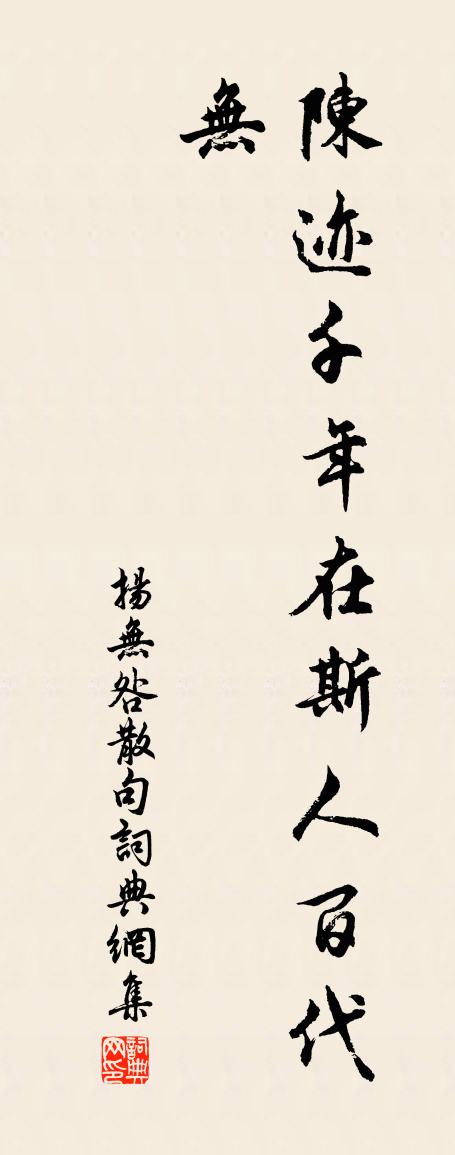 陳迹千年在斯人百代
無
揚無咎散句詞典網集
詞典网印